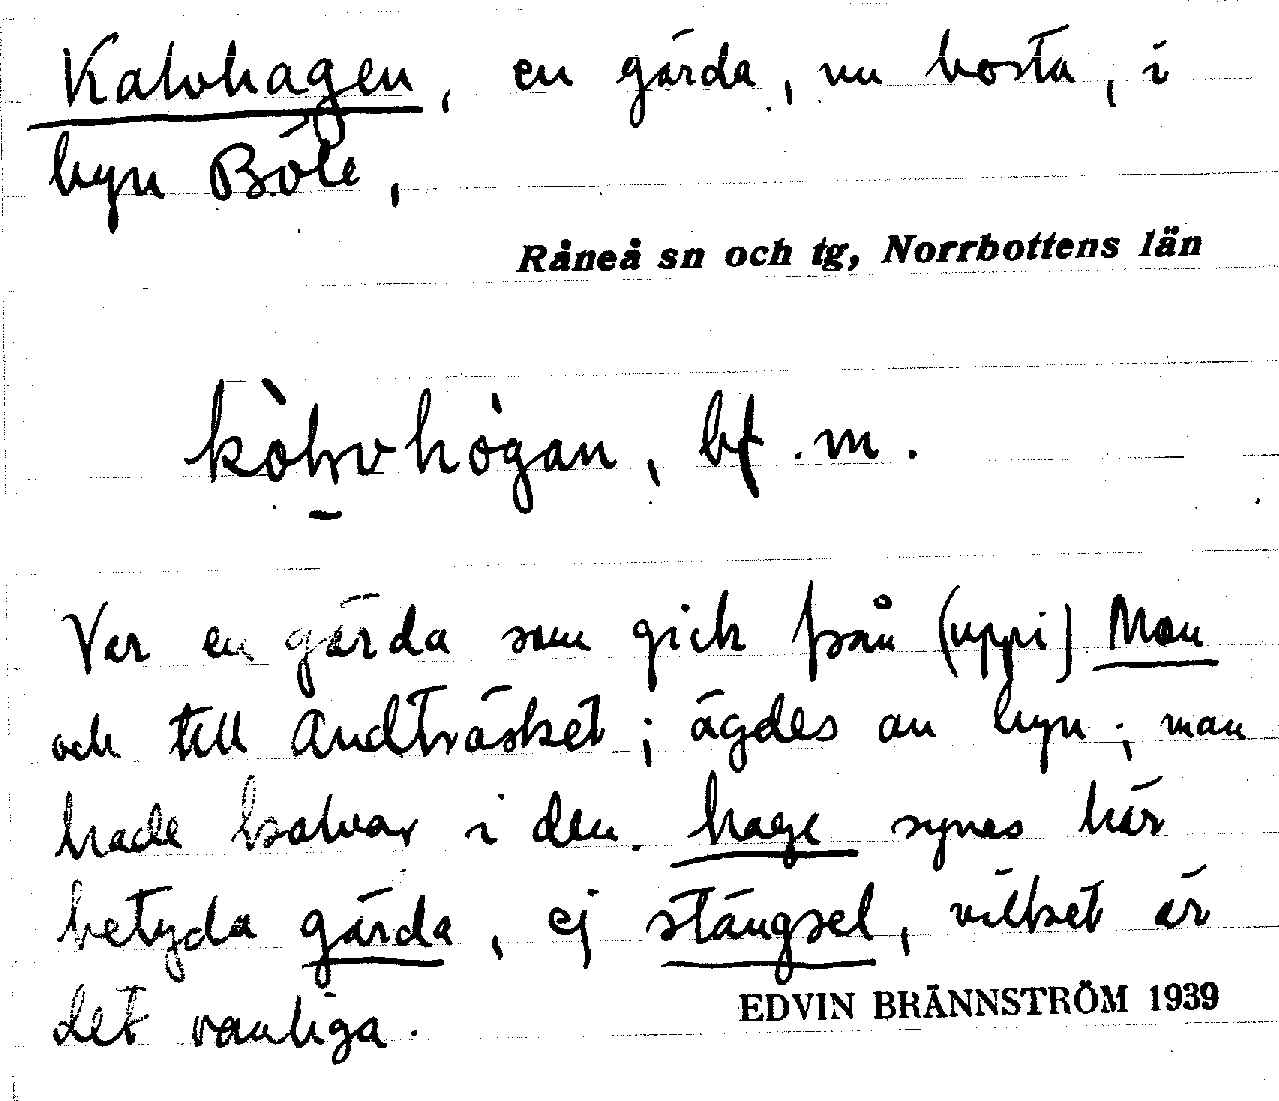 Kalvhagen, en gärda, nu borta, i
byn Böle,
Råneå sn och tg, Norrbottens län
kòlvhògan, bf. m.
Var en gärda som gick från (uppi) Mon
och till Andträsket; ägdes av byn; man
hade kalvar i den. hage synes här
betyda gärda, ej stängsel, vilket är
det vanliga.
EDVIN BRÄNNSTRÖM 1939